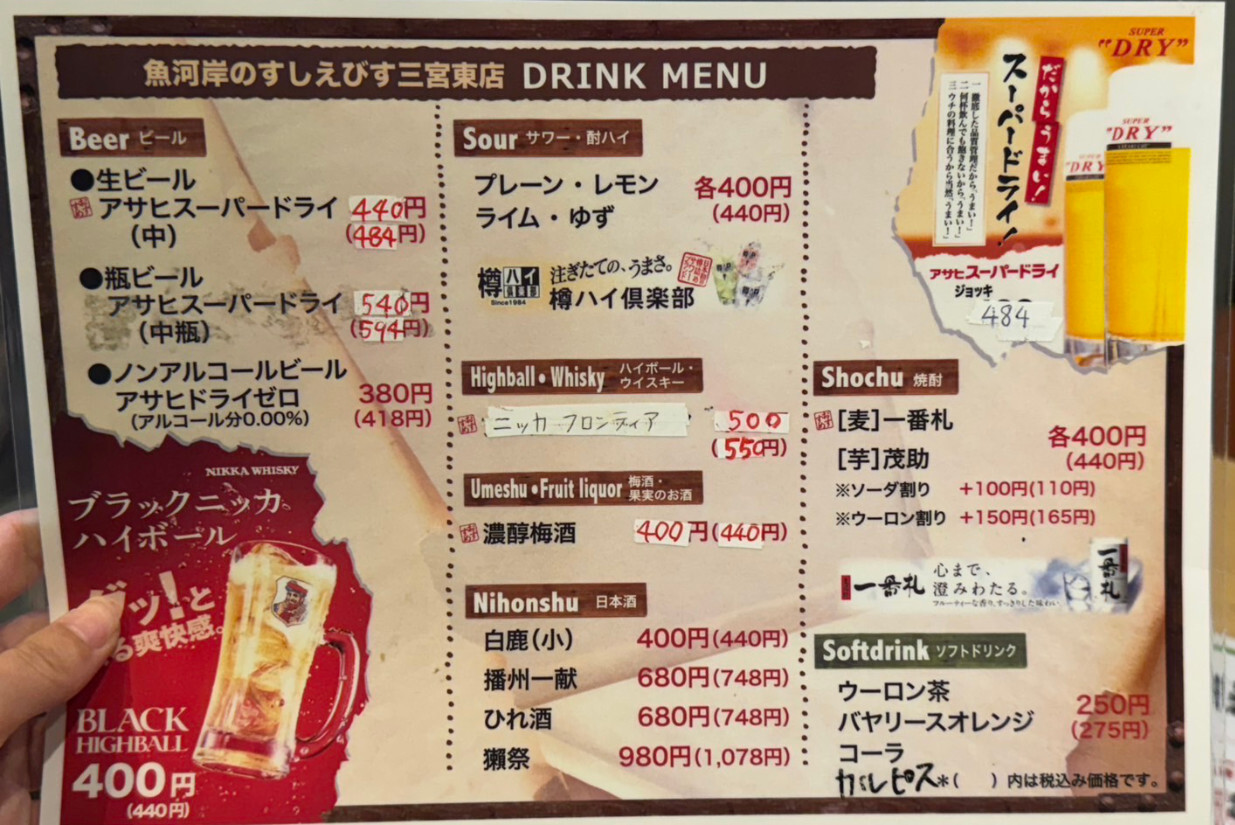 魚河岸のすしえびす三宮東店 DRINK MENU
Beer ビール
●生ビール
アサヒスーパードライ 440円
(中) (484円)
●瓶ビール
アサヒスーパードライ 540円
(中瓶) (594円)
●ノンアルコールビール
アサヒドライゼロ 380円
(アルコール分0.00%) (418円)
NIKKA WHISKY
ブラックニッカ
ハイボール
ッ!と
る爽快感。
BLACK
HIGHBALL
400円
(440円)
Sour サワー・酎ハイ
プレーン・レモン 各400円
ライム・ゆず (440円)
樽ハイ倶楽部 Since1984
注ぎたての、うまさ。
樽ハイ倶楽部
Highball・Whisky ハイボール・
ウイスキー
ニッカ フロンティア 500
(550円)
Umeshu・Fruit liquor 梅酒・
果実のお酒
濃醇梅酒 400円(440円)
Nihonshu 日本酒
白鹿(小) 400円(440円)
播州一献 680円(748円)
ひれ酒 680円(748円)
獺祭 980円(1,078円)
SUPER
"DRY"
だからうまい!
スーパードライ!
一 徹底した品質管理だから、うまい!
二 何杯飲んでも飽きないから、うまい!
三 ウチの料理に合うから当然、うまい!
SUPER
"DRY"
"DRY"
アサヒスーパードライ
ジョッキ
484
Shochu 焼酎
[麦]一番札 各400円
[芋]茂助 (440円)
※ソーダ割り +100円(110円)
※ウーロン割り +150円(165円)
一番札
心まで、
澄みわたる。
フルーティーな香り、すっきりした味わい
一番札
Softdrink ソフトドリンク
ウーロン茶 250円
バヤリースオレンジ (275円)
コーラ
カルピス
*( )内は税込み価格です。